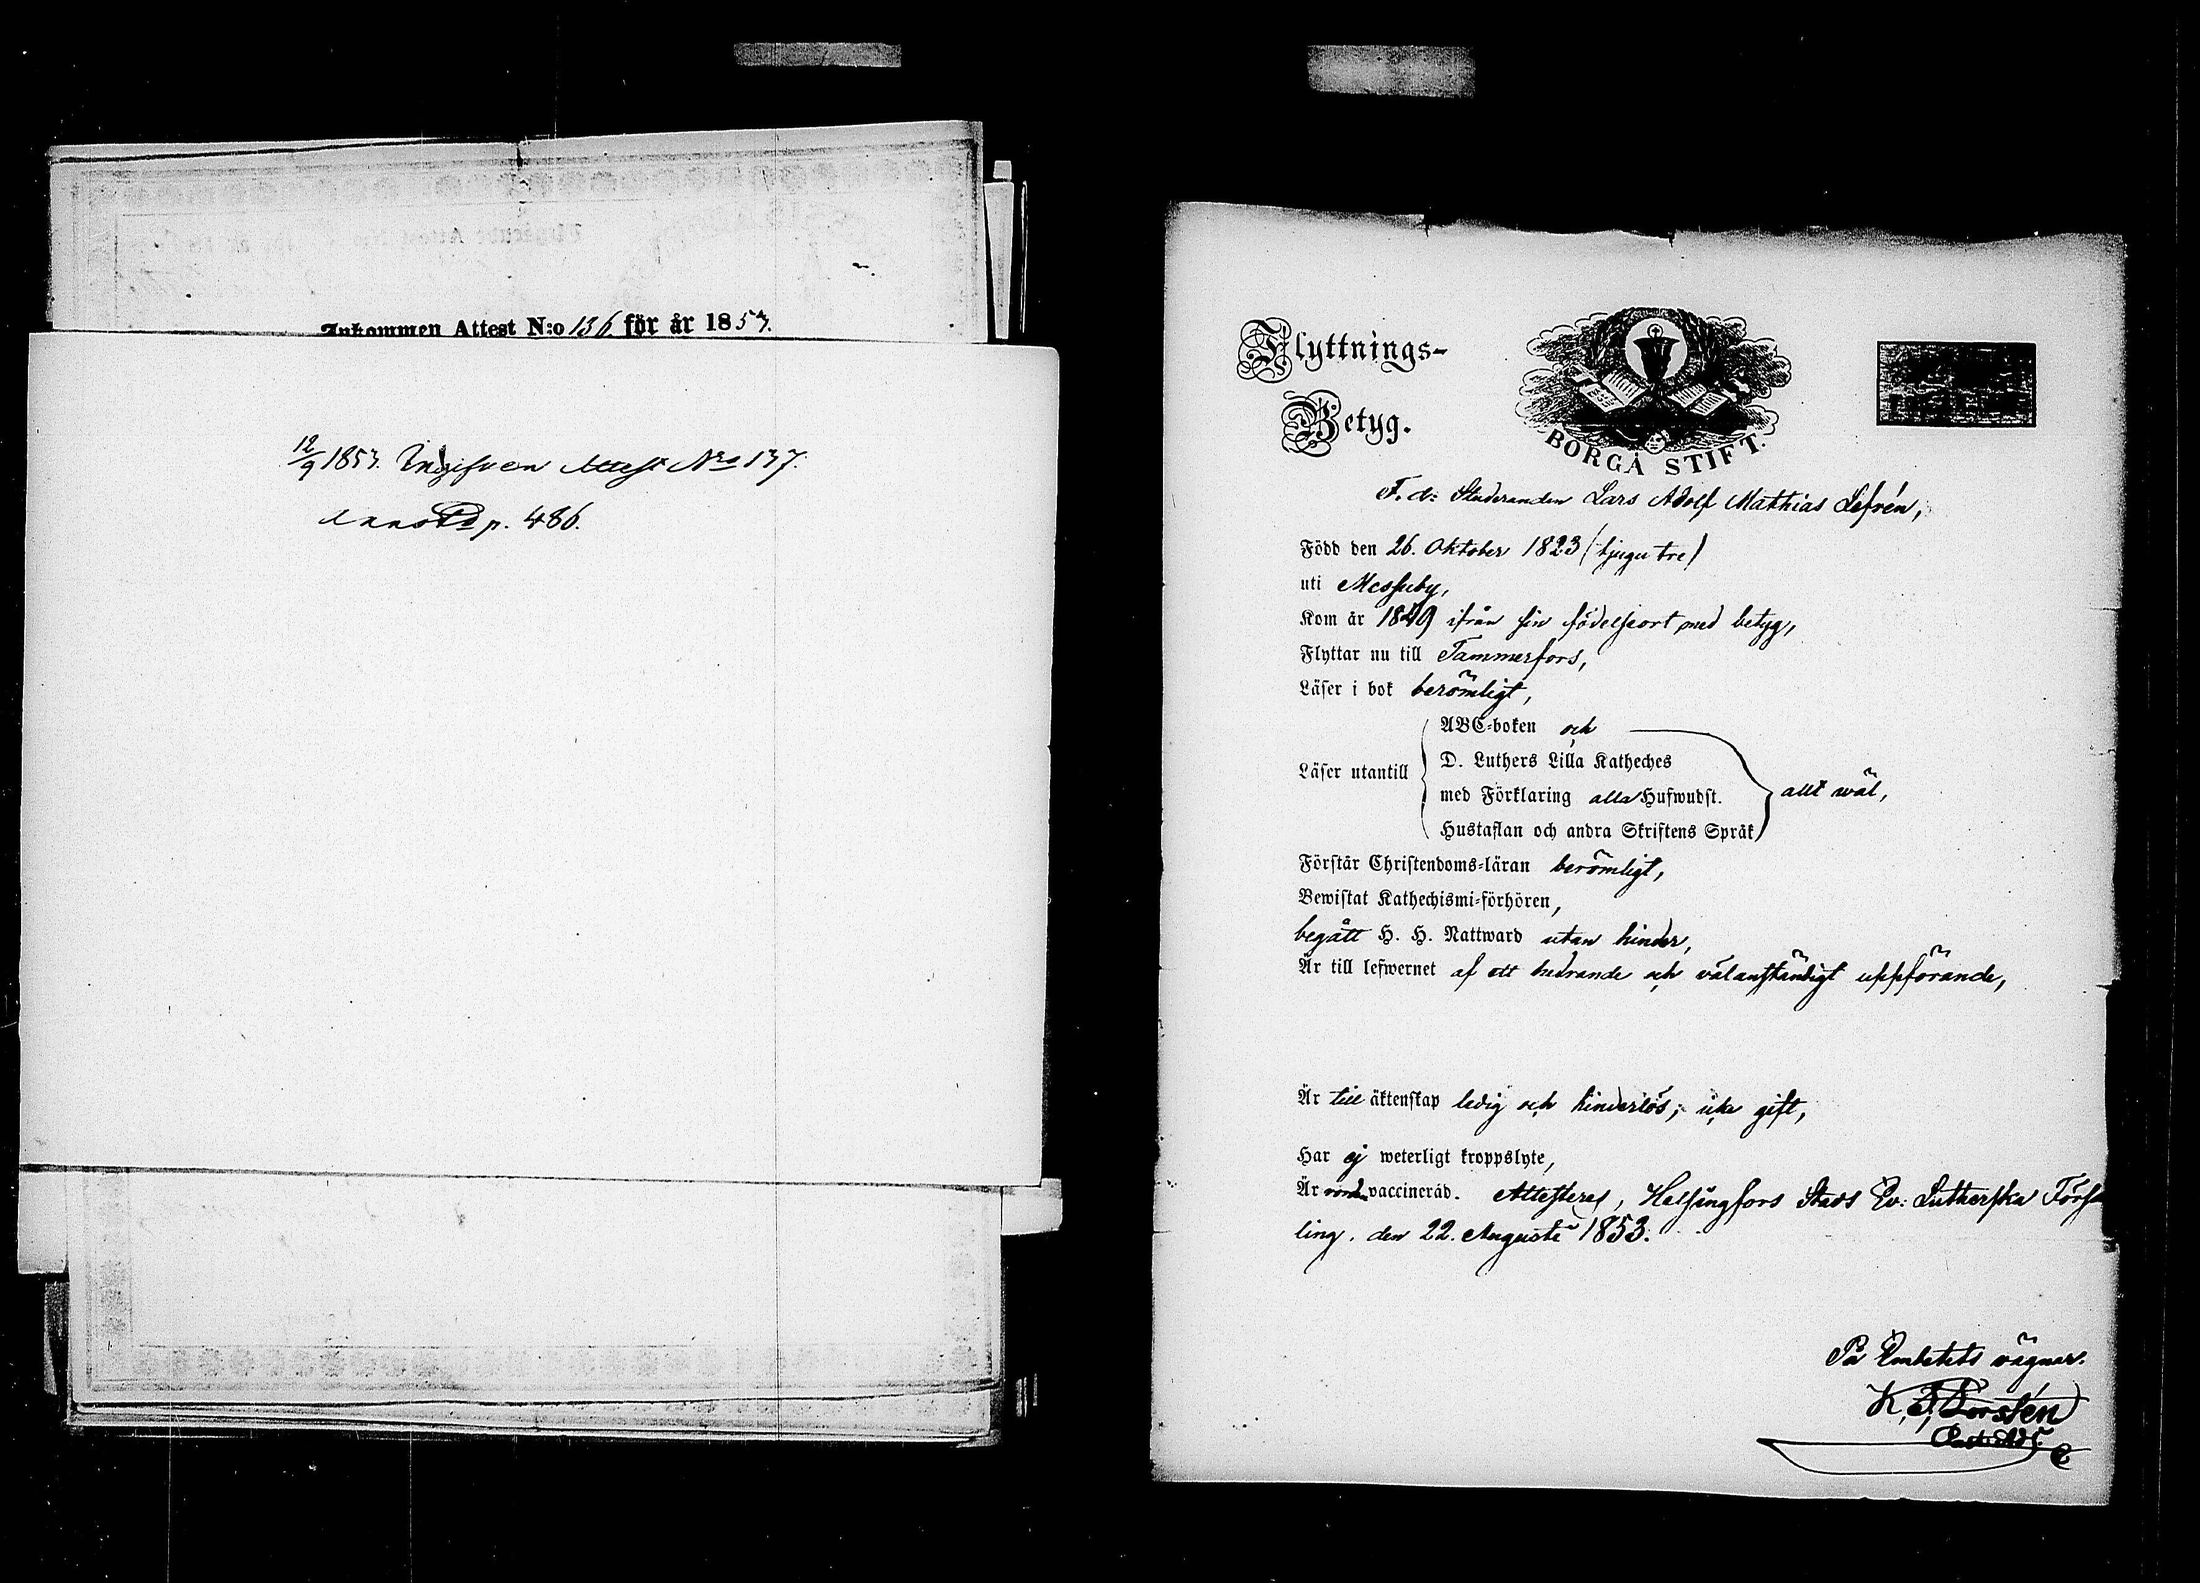 Inkommen Attest N:o 136 för år 1853.
12/9 1853. Ingifven Attest No 137.
p. 486.
Flyttnings-
Betyg.
BORGÅ STIFT.
F. d: Studeranden Lars Adolf Mathias Lefrén,
Född den 26. Oktober 1823 (tjugu tre)
uti Messuby,
Kom år 1849 ifrån sin födelseort med betyg,
Flyttar nu till Tammerfors,
Läser i bok berömligt,
Läser utantill
ABC-boken och
D. Luthers Lilla Katheches
med Förklaring alla Hufwudst.
Hustaflan och andra Skriftens Språk
allt wäl,
Förstår Christendoms-läran berömligt,
Bewistat Kathechismi-förhören,
begått H. H. Nattward utan hinder,
Är till lefwernet af ett hedrande och välanständigt uppförande,
Är till äktenskap ledig och hinderlös; icke gift,
Har ej weterligt kroppslyte,
Är vaccineräd. Attesteras, Helsingfors Stads Ev: Lutherska Försam
ling. den 22. Augusti 1853.
På Embetets vägnar.
K. Forstén